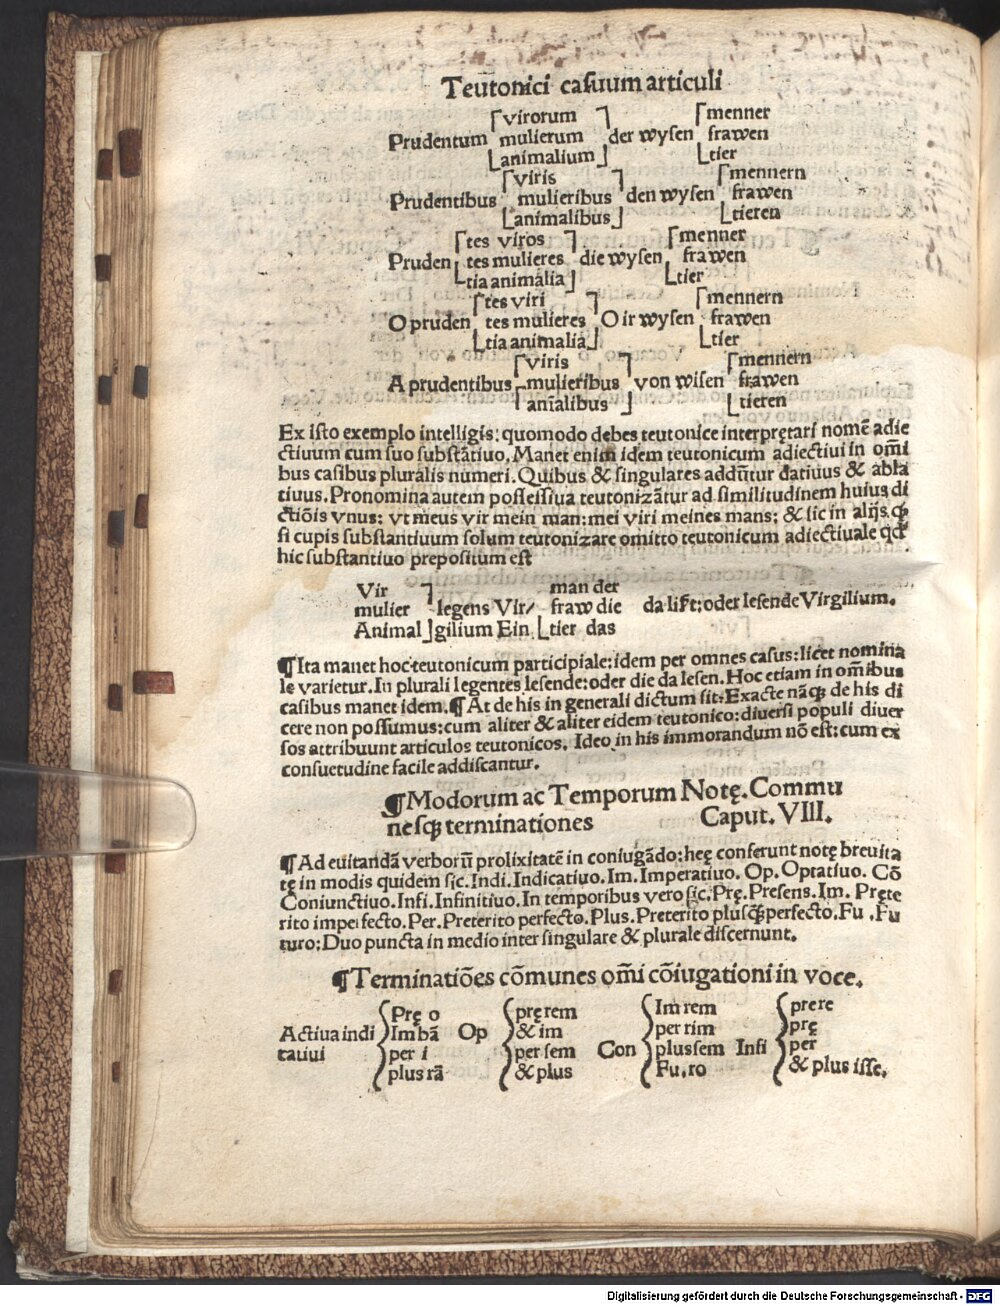 Teutonici casuum articuli
virorum menner
Prudentum mulierum der wysen frawen
animalium tier
viris mennern
Prudentibus mulieribus den wysen frawen
animalibus tieren
tes viros menner
Pruden tes mulieres die wysen frawen
tia animalia tier
tes viri mennern
O pruden tes mulieres O ir wysen frawen
tia animalia tier
viris mennern
A prudentibus mulieribus von wisen frawen
aīalibus tieren
Ex isto exemplo intelligis: quomodo debes teutonice interpretari nomē adie
ctiuum cum suo substātiuo. Manet enim idem teutonicum adiectiui in om̄i
bus casibus pluralis numeri. Quibus & singulares addūtur datiuus & abla
tiuus. Pronomina autem possessiua teutonizātur ad similitudinem huius di
ctiōis vnus: vt meus vir mein man: mei viri meines mans: & sic in alijs. qꝫ
si cupis substantiuum solum teutonizare omitto teutonicum adiectiuale qd
hic substantiuo prepositum est
Vir man der
mulier legens Vir/ fraw die da lißt: oder lesende Virgilium.
Animal gilium Ein tier das
¶Ita manet hoc teutonicum participiale: idem per omnes casus: licet nomina
le varietur. In plurali legentes lesende: oder die da lesen. Hoc etiam in om̄ibus
casibus manet idem. ¶At de his in generali dictum sit: Exacte nāqꝫ de his di
cere non possumus: cum aliter & aliter eidem teutonico: diuersi populi diuer
sos attribuunt articulos teutonicos. Ideo in his immorandum nō est: cum ex
consuetudine facile addiscantur.
¶Modorum ac Temporum Notę. Commu
nesqꝫ terminationes Caput. VIII.
¶Ad euitandā verborū prolixitatē in coniugādo: heę conferunt notę breuita
tę in modis quidem sic. Indi. Indicatiuo. Im. Imperatiuo. Op. Optatiuo. Cō
Coniunctiuo. Infi. Infinitiuo. In temporibus vero sic. Prę. Presens. Im. Pręte
rito imperfecto. Per. Preterito perfecto. Plus. Preterito plusqꝫperfecto. Fu. Fu
turo: Duo puncta in medio inter singulare & plurale discernunt.
¶Terminatiōes cōmunes om̄i cōiugationi in voce.
Prę o pręrem Im rem prere
Actiua indi Im bā Op & im per rim prę
tatiui per i per sem Con plus sem Infi per
plus rā & plus Fu. ro & plus isse.